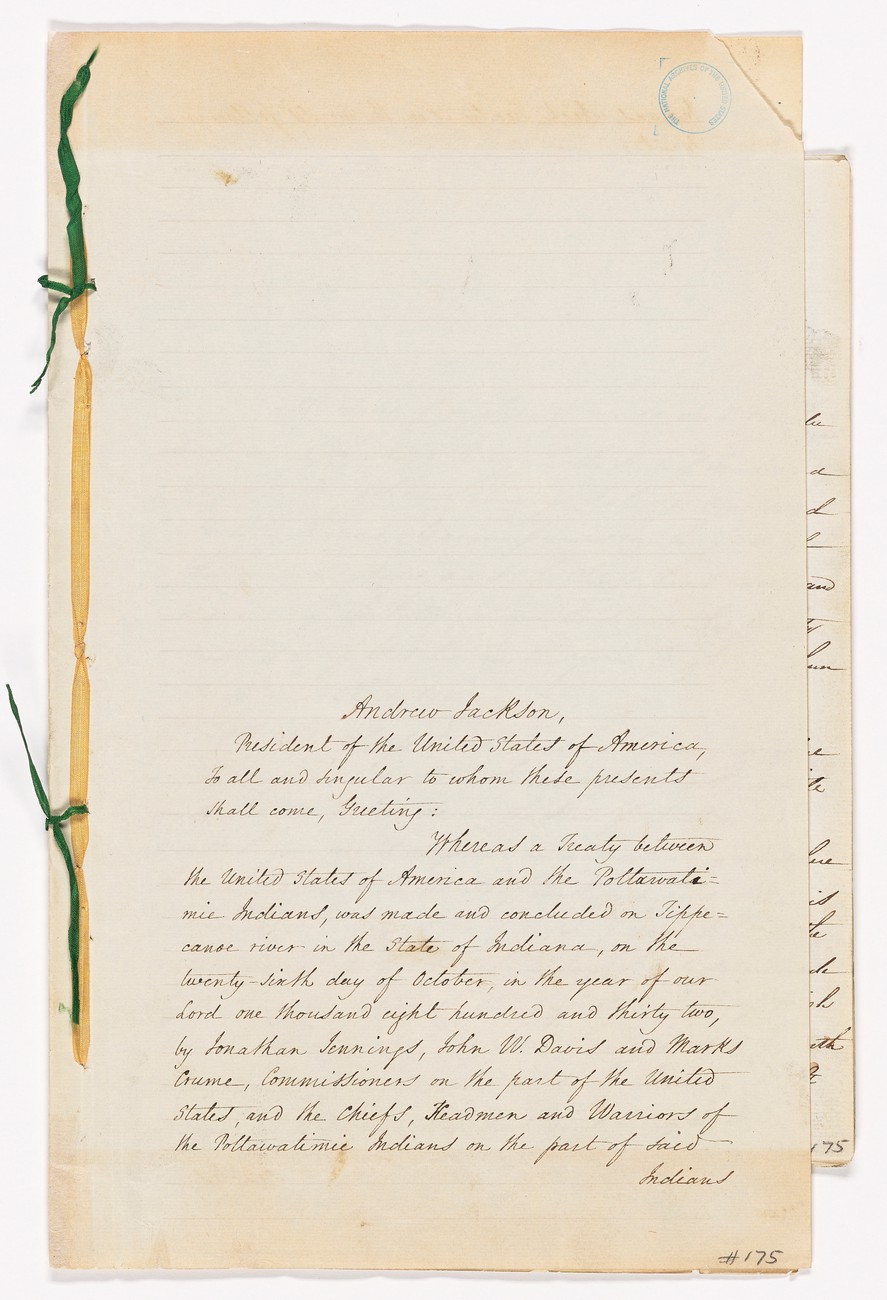 THE NATIONAL ARCHIVES OF THE UNITED STATES
Andrew Jackson,
President of the United States of America,
To all and singular to whom these presents
shall come, Greeting:
Whereas a Treaty between
the United States of America and the Pottawati=
mie Indians, was made and concluded on Tippe=
canoe river in the State of Indiana, on the
twenty-sixth day of October, in the year of our
Lord one thousand eight hundred and thirty two,
by Jonathan Jennings, John W. Davis and Marks
Crume, Commissioners on the part of the United
States, and the Chiefs, Headmen and Warriors of
the Pottawatimie Indians on the part of said
Indians
#175
and
175